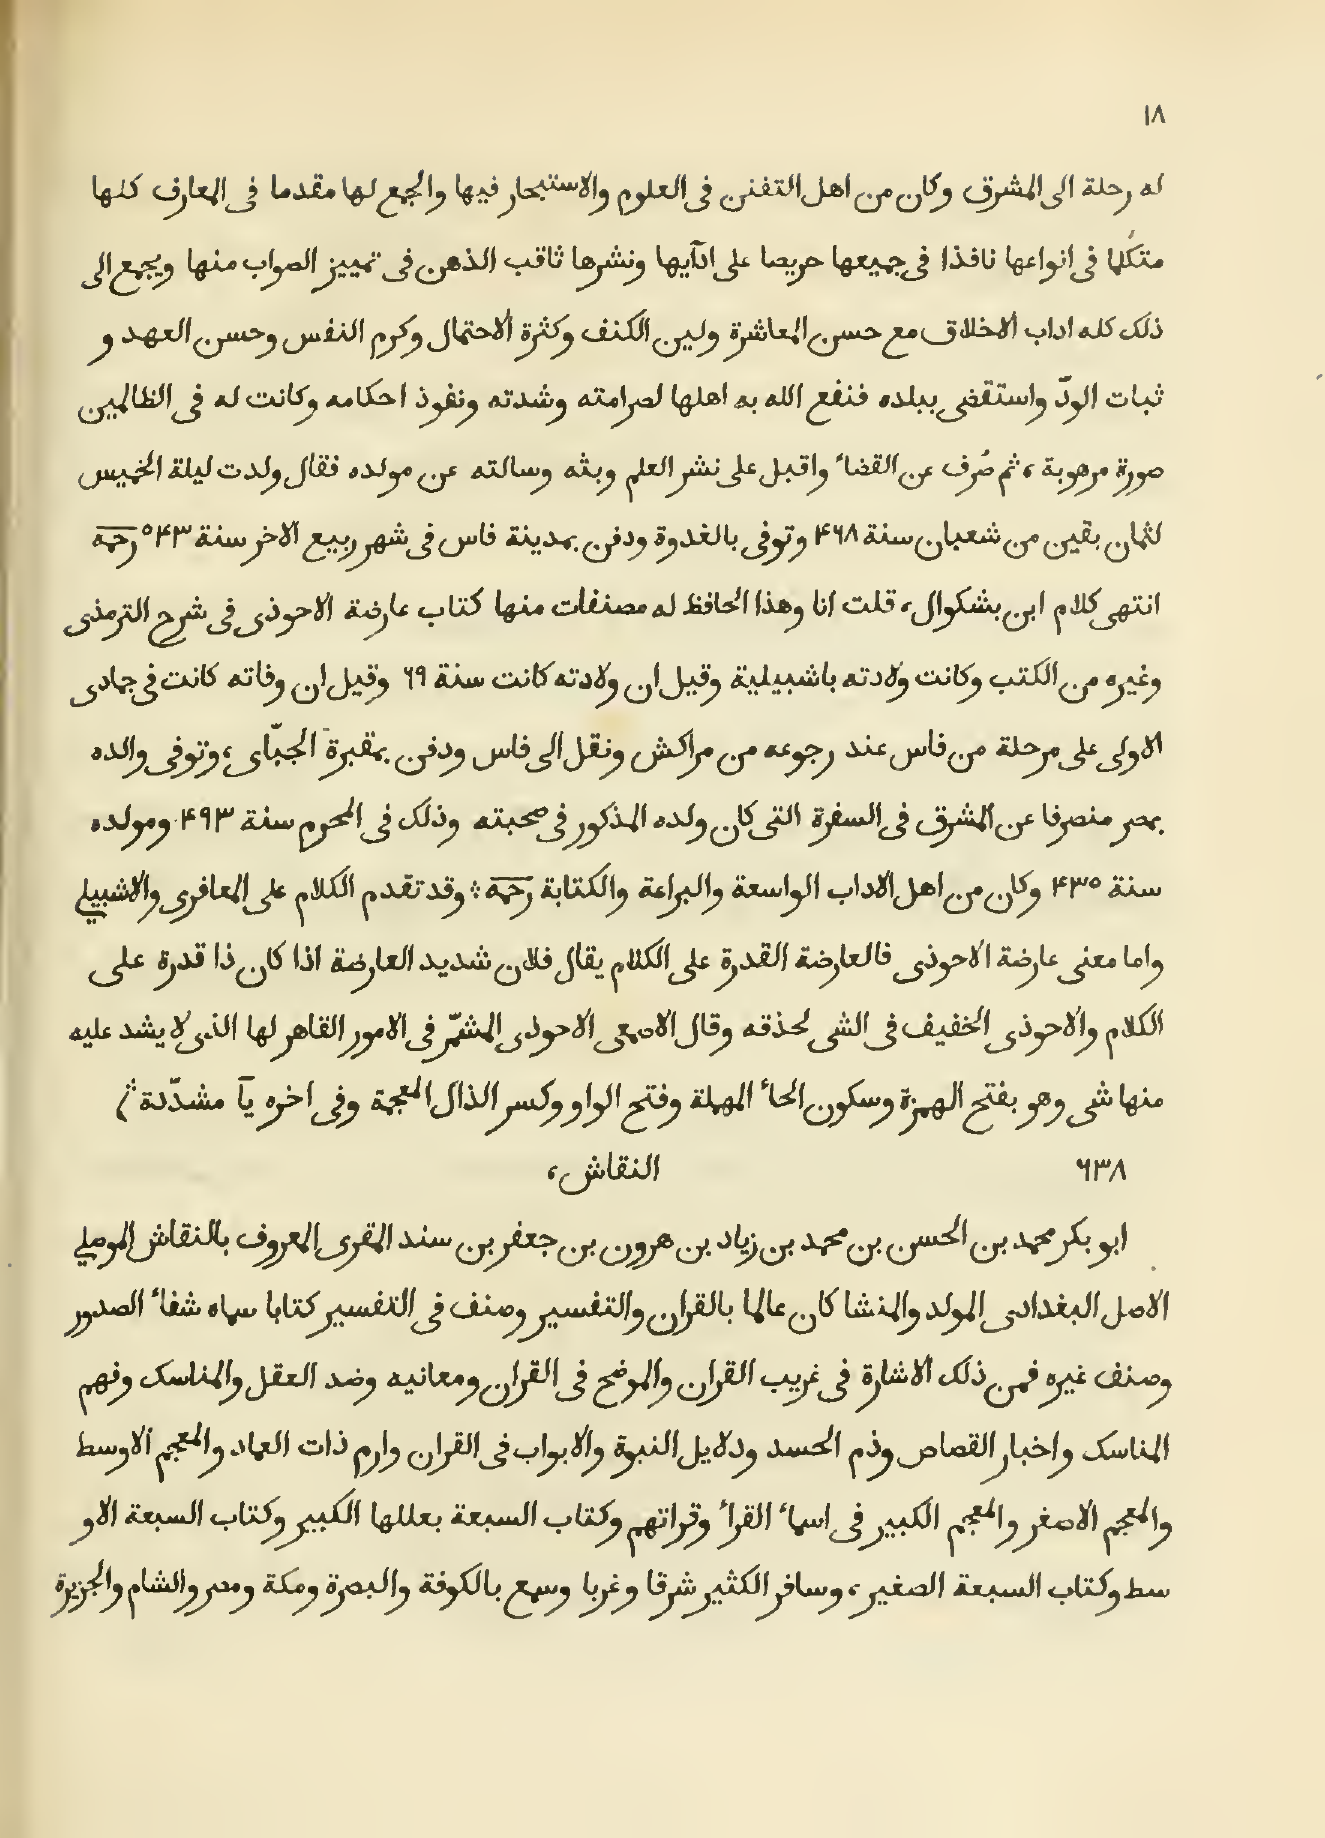 ١٨
له رحلة الى المشرق وكان من اهل التفنن فى العلوم والاستبحار فيها والجمع لها مقدما فى المعارف كلها
متكلما فى انواعها نافذا فى جميعها حريصا على ادآيها ونشرها ثاقب الذهن فى تمييز الصواب منها ويجمع الى
ذلك كله اداب الاخلاق مع حسن المعاشرة ولين الكنف وكثرة الاحتمال وكرم النفس وحسن العهد و
ثبات الودّ واستقضى ببلده فنفع الله به اهلها لصرامته وشدته ونفوذ احكامه وكانت له فى الظالمين
صورة مرهوبة، ثم صُرف عن القضاء واقبل على نشر العلم وبثه وسالته عن مولده فقال ولدت ليلة الخميس
لثمان بقين من شعبان سنة ۴۶۸ وتوفى بالغدوة ودفن بمدينة فاس فى شهر ربيع الاخر سنة ۵۴۳ رحمه
انتهى كلام ابن بشكوال، قلت انا وهذا الحافظ له مصنفات منها كتاب عارضة الاحوذى فى شرح الترمذى
وغيره من الكتب وكانت ولادته باشبيلية وقيل ان ولادته كانت سنة ۶۹ وقيل ان وفاته كانت فى جمادى
الاولى على مرحلة من فاس عند رجوعه من مراكش ونقل الى فاس ودفن بمقبرة الجبّاى، وتوفى والده
بمصر منصرفا عن المشرق فى السفرة التى كان ولده المذكور فى صحبته وذلك فى المحرم سنة ۴۹۳ ومولده
سنة ۴۳۵ وكان من اهل الاداب الواسعة والبراعة والكتابة رحمه وقد تقدم الكلام على المعافرى والاشبيلي
واما معنى عارضة الاحوذى فالعارضة القدرة على الكلام يقال فلان شديد العارضة اذا كان ذا قدرة على
الكلام والاحوذى الخفيف فى الشى لحذقه وقال الاصمعى الاحوذى المشمّر فى الامور القاهر لها الذى لا يشد عليه
منها شى وهو بفتح الهمزة وسكون الحاء المهملة وفتح الواو وكسر الذال المعجمة وفى اخره يآ مشدّدة
۶۳۸ النقاش،
ابو بكر محمد بن الحسن بن محمد بن زياد بن هرون بن جعفر بن سند المقرى المعروف بالنقاش الموصلي
الاصل البغدادى المولد والمنشا كان عالما بالقران والتفسير وصنف فى التفسير كتابا سماه شفاء الصدور
وصنف غيره فمن ذلك الاشارة فى غريب القران والموضح فى القران ومعانيه وضد العقل والمناسك وفهم
المناسك واخبار القصاص وذم الحسد ودلايل النبوة والابواب فى القران وارم ذات العماد والمعجم الاوسط
والمعجم الاصغر والمعجم الكبير فى اسماء القراء وقراتهم وكتاب السبعة بعللها الكبير وكتاب السبعة الاو
سط وكتاب السبعة الصغير، وسافر الكثير شرقا وغربا وسمع بالكوفة والبصرة ومكة ومصر والشام والجزيرة